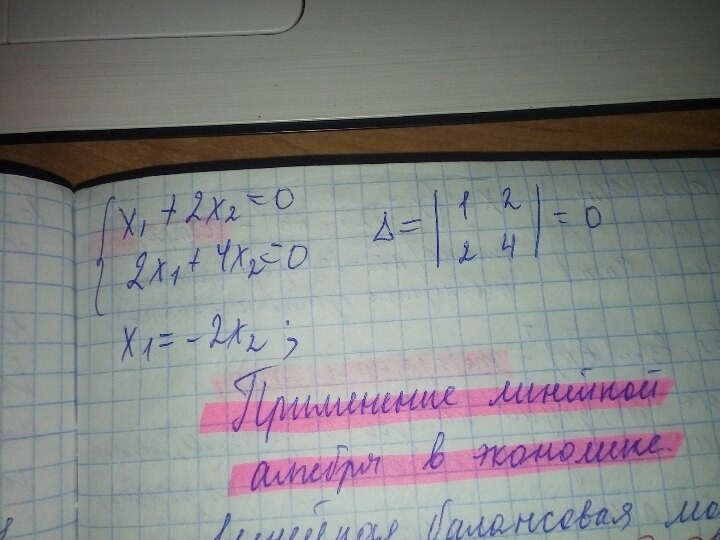 { x₁ + 2x₂ = 0
2x₁ + 4x₂ = 0
Δ = | 1 2 |
| 2 4 | = 0
x₁ = -2x₂ ;
Применение линейной
алгебры в экономике.
балансовая